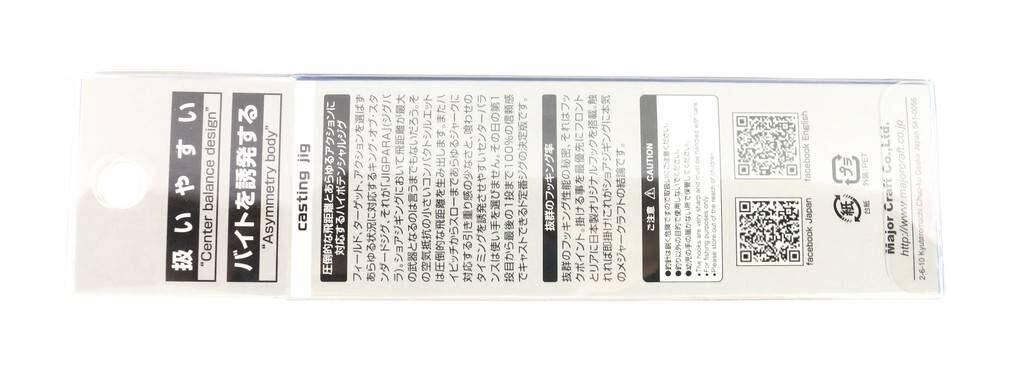 扱いやすい
"Center balance design"
バイトを誘発する
"Asymmetry body"
casting jig
圧倒的な飛距離とあらゆるアクションに
対応するハイポテンシャルジグ
フィールド、ターゲット、アクションを選ばず
あらゆる状況に対応するキング・オブ・スタ
ンダードジグ、それが「JIGPARA」(ジグパ
ラ)。ショアジギングにおいて飛距離が最大
の武器となるのは言うまでもないだろう。そ
の空気抵抗の小さいコンパクトシルエット
は圧倒的な飛距離を生み出します。またハ
イピッチからスローまであらゆるジャークに
対応する引き重り感の少なさと、喰わせの
タイミングを誘発させやすいセンターバラ
ンスは使い手を選びません。その日の第1
投目から最後の1投まで100%の信頼感
でキャストできるド定番ジグの決定版です。
抜群のフッキング率
抜群のフッキング性能の秘密、それはフッ
クポイント。掛ける事を最優先にフロント
とリアに日本製オリジナルフックを搭載。触
れれば即掛け!これがショアジギング!に本気
のメジャークラフトの結論です。
ご注意 CAUTION
●釣針は鋭く危険ですので取扱いにご注意ください。
●釣り以外の目的で使用しないでください。
●幼児の手の届かない所で保管してください。
●The hooks are very sharp and must be handled with care.
●For fishing purposes only.
●Please store out of the reach of children.
facebook Japan
facebook English
紙
台紙
プラ
外装:PET
Major Craft Co.,Ltd.
http://www.majorcraft.co.jp
2-6-10 Kyutaromachi Chuo-ku Osaka Japan 541-0056